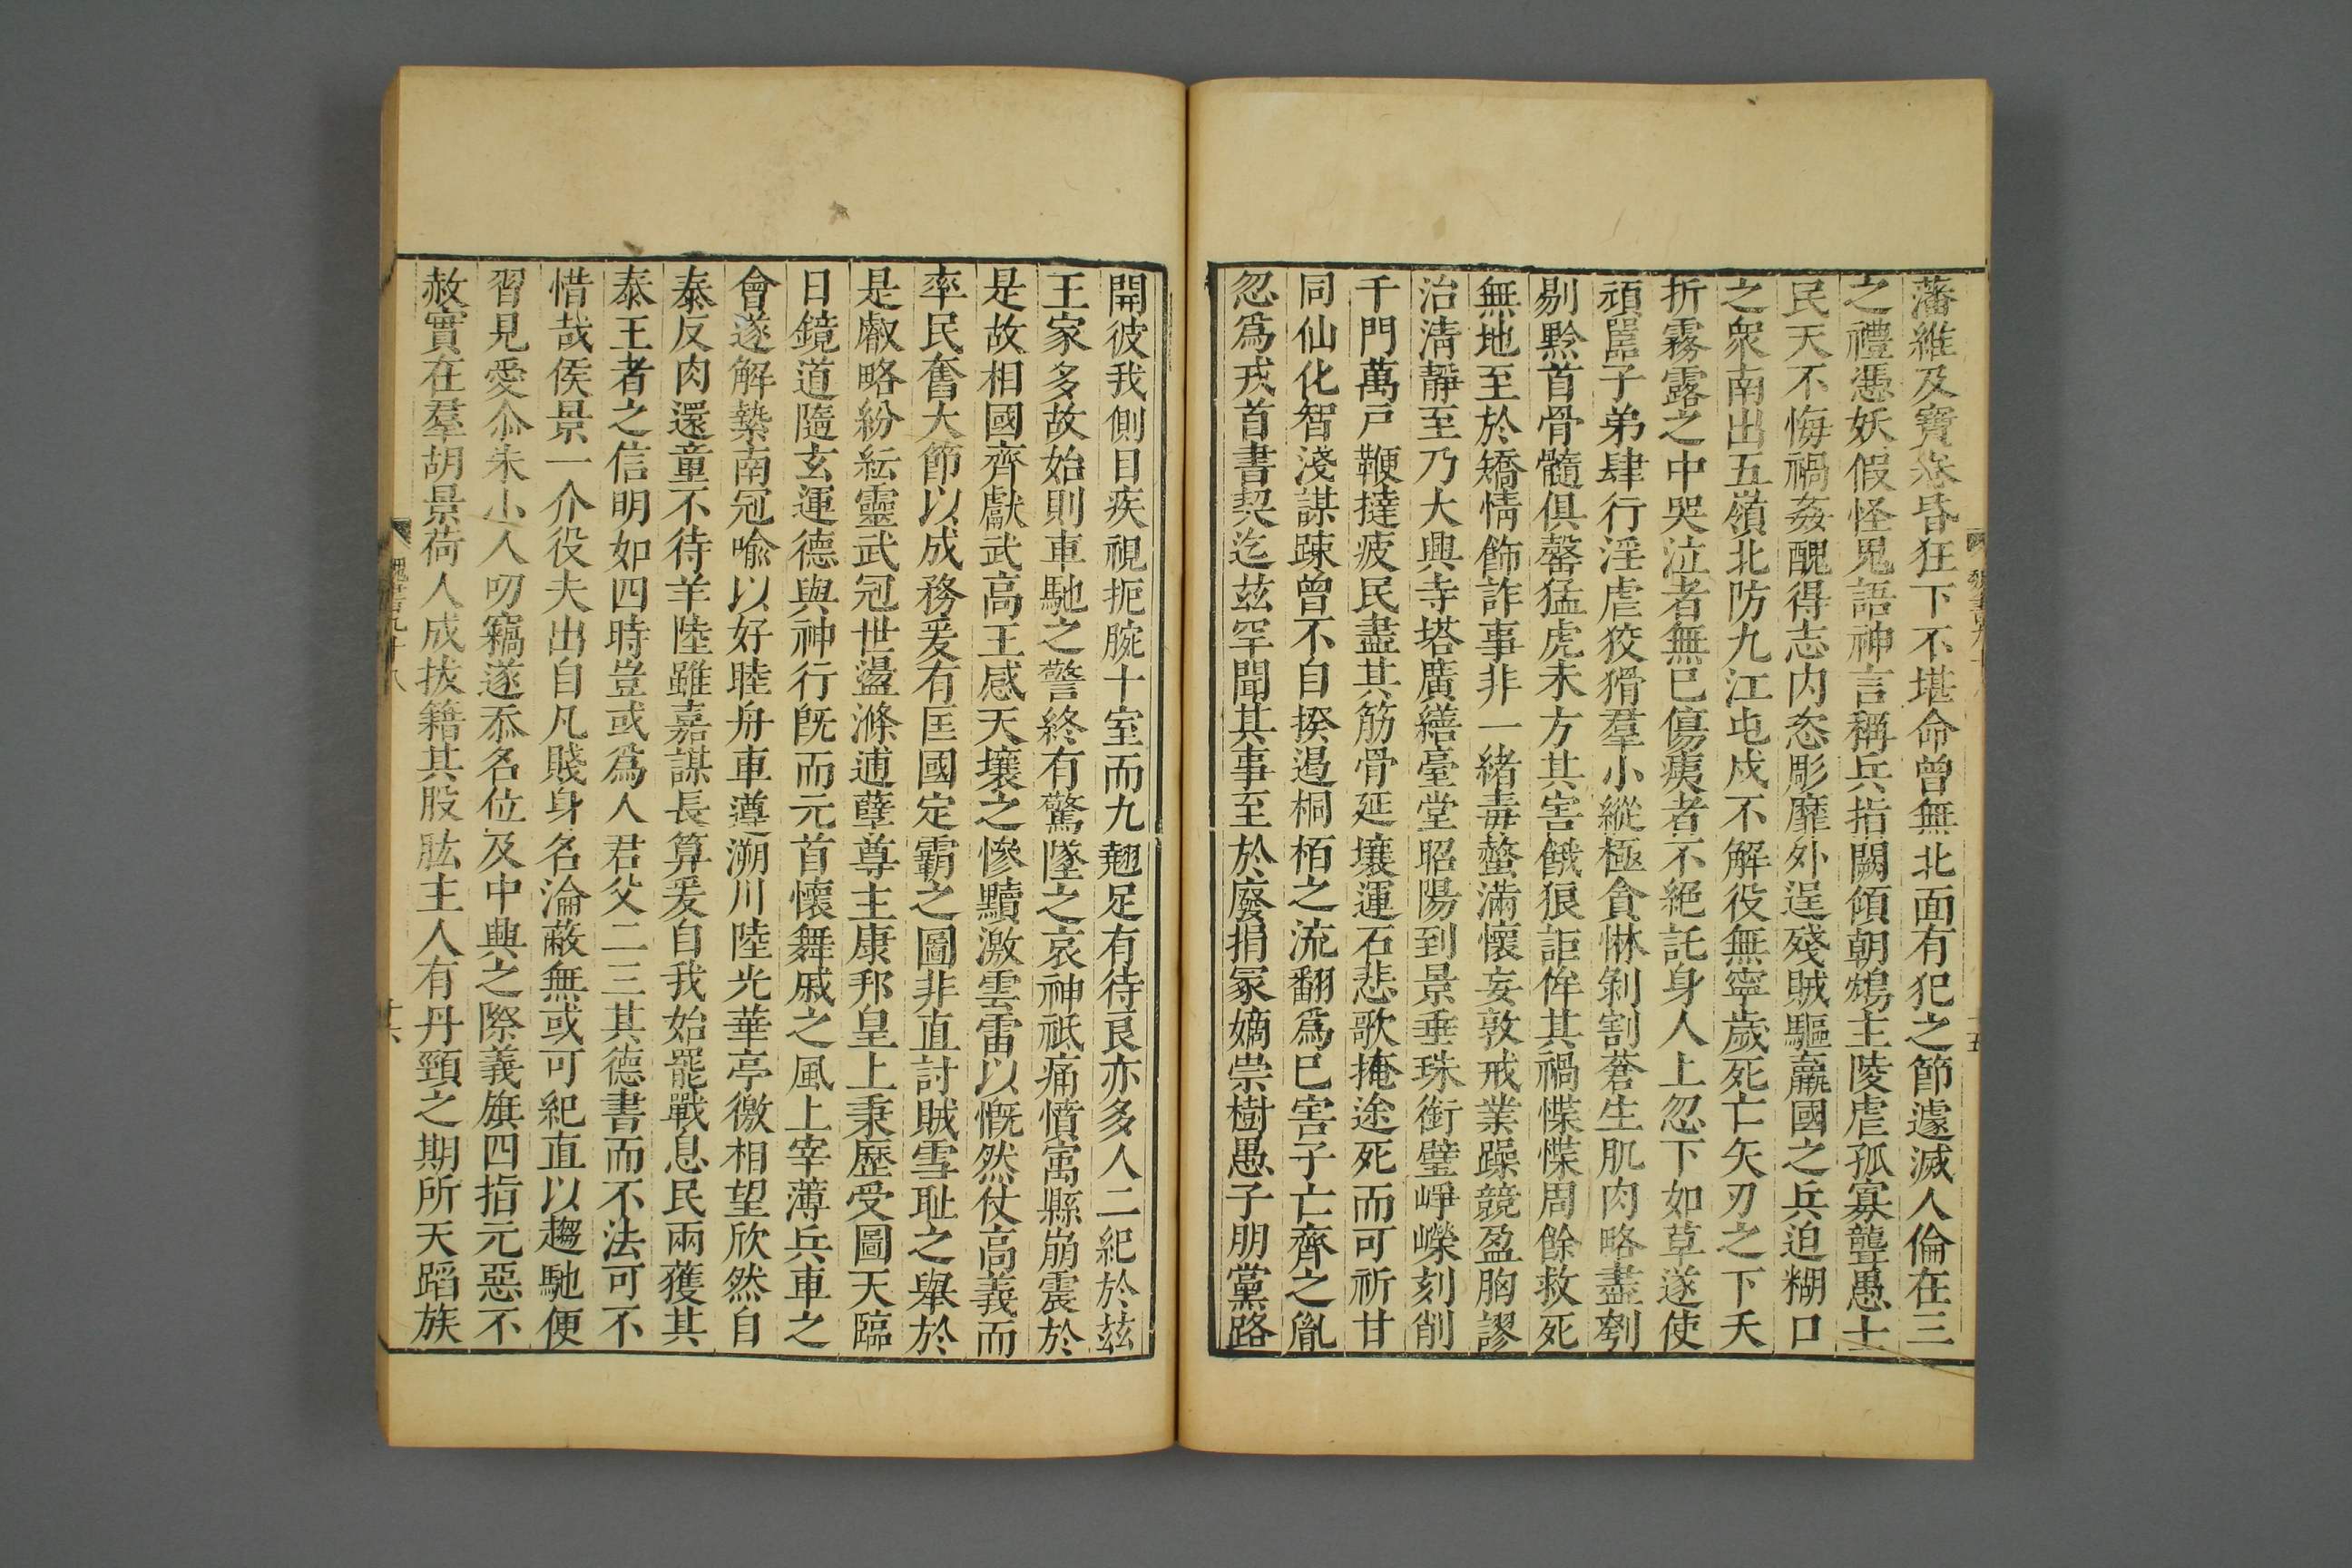 藩維及寶卷昏狂下不堪命曾無北面有犯之節遽滅人倫在三
之禮憑妖假怪鬼語神言稱兵指闕傾朝鴆主陵虐孤寡聾愚士
民天不悔禍姦醜得志内恣彫靡外逞殘賊驅羸國之兵迫糊口
之衆南出五嶺北防九江屯戍不解役無寧歲死亡矢刃之下夭
折霧露之中哭泣者無已傷痍者不絕託身人上忽下如草遂使
頑嚚子弟肆行淫虐狡猾羣小縱極貪惏剝割蒼生肌肉略盡刳
剔黔首骨髓俱罄猛虎未方其害餓狼詎侔其禍惵惵周餘救死
無地至於矯情飾詐事非一緒毒螫滿懷妄敦戒業躁競盈胸謬
治清靜至乃大興寺塔廣繕臺堂昭陽到景垂珠銜璧崢嶸刻削
千門萬戶鞭撻疲民盡其筋骨延壤運石悲歌掩途死而可祈甘
同仙化智淺謀疎曾不自揆遏桐栢之流翻爲巳害子亡齊之胤
忽爲戎首書契迄茲罕聞其事至於廢捐冢嫡崇樹愚子朋黨路
魏書九十八
十五
開彼我側目疾視扼腕十室而九翹足有待良亦多人二紀於茲
王家多故始則車馳之警終有驚墜之哀神祇痛憤寓縣崩震於
是故相國齊獻武高王感天壤之慘黷激雲雷以慨然仗高義而
率民奮大節以成務爰有匡國定霸之圖非直討賊雪耻之舉於
是叡略紛紜靈武冠世盪滌逋孽尊主康邦皇上秉歷受圖天臨
日鏡道隨玄運德與神行旣而元首懷舞戚之風上宰薄兵車之
會遂解縶南冠喻以好睦舟車遵溯川陸光華亭徼相望欣然自
泰反肉還童不待羊陸雖嘉謀長算爰自我始罷戰息民兩獲其
泰王者之信明如四時豈或爲人君父二三其德書而不法可不
惜哉侯景一介役夫出自凡賤身名淪蔽無或可紀直以趨馳便
習見愛尒朱小人叨竊遂忝名位及中興之際義旗四指元惡不
赦實在羣胡景荷人成拔籍其股肱主人有丹頸之期所天蹈族
魏書九十八
十六